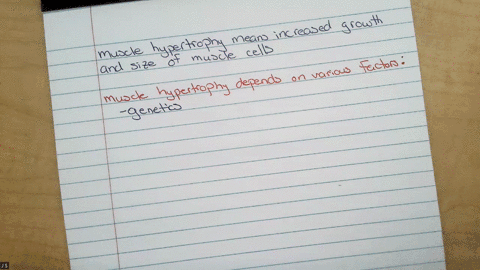 muscle hypertrophy means increased growth
and size of muscle cells
muscle hypertrophy depends on various factors:
-genetics